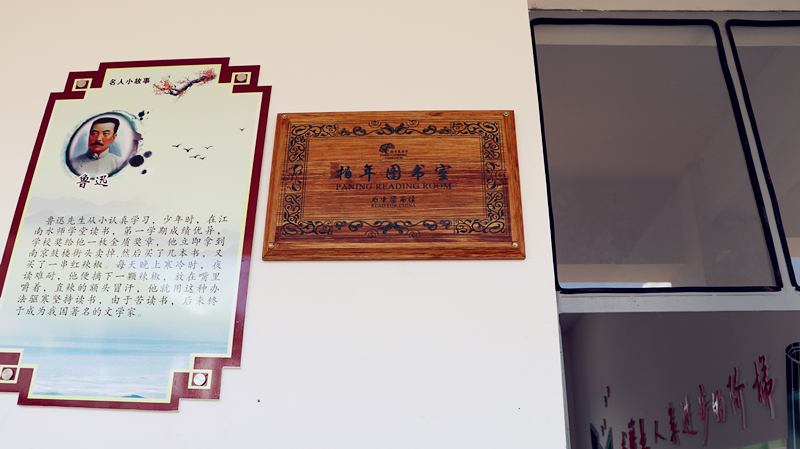 名人小故事
鲁迅
鲁迅先生从小认真学习，少年时，在江
南水师学堂读书，第一学期成绩优异，
学校奖给他一枚金质奖章，他立即拿到
南京鼓楼街头卖掉，然后买了几本书，又
买了一串红辣椒。每天晚上寒冷时，夜
读难耐，他便摘下一颗辣椒，放在嘴里
嚼着，直辣的额头冒汗，他就用这种办
法驱寒坚持读书，由于苦读书，后来终
于成为我国著名的文学家。
柏年图书室
PANING READING ROOM
人类进步的阶梯